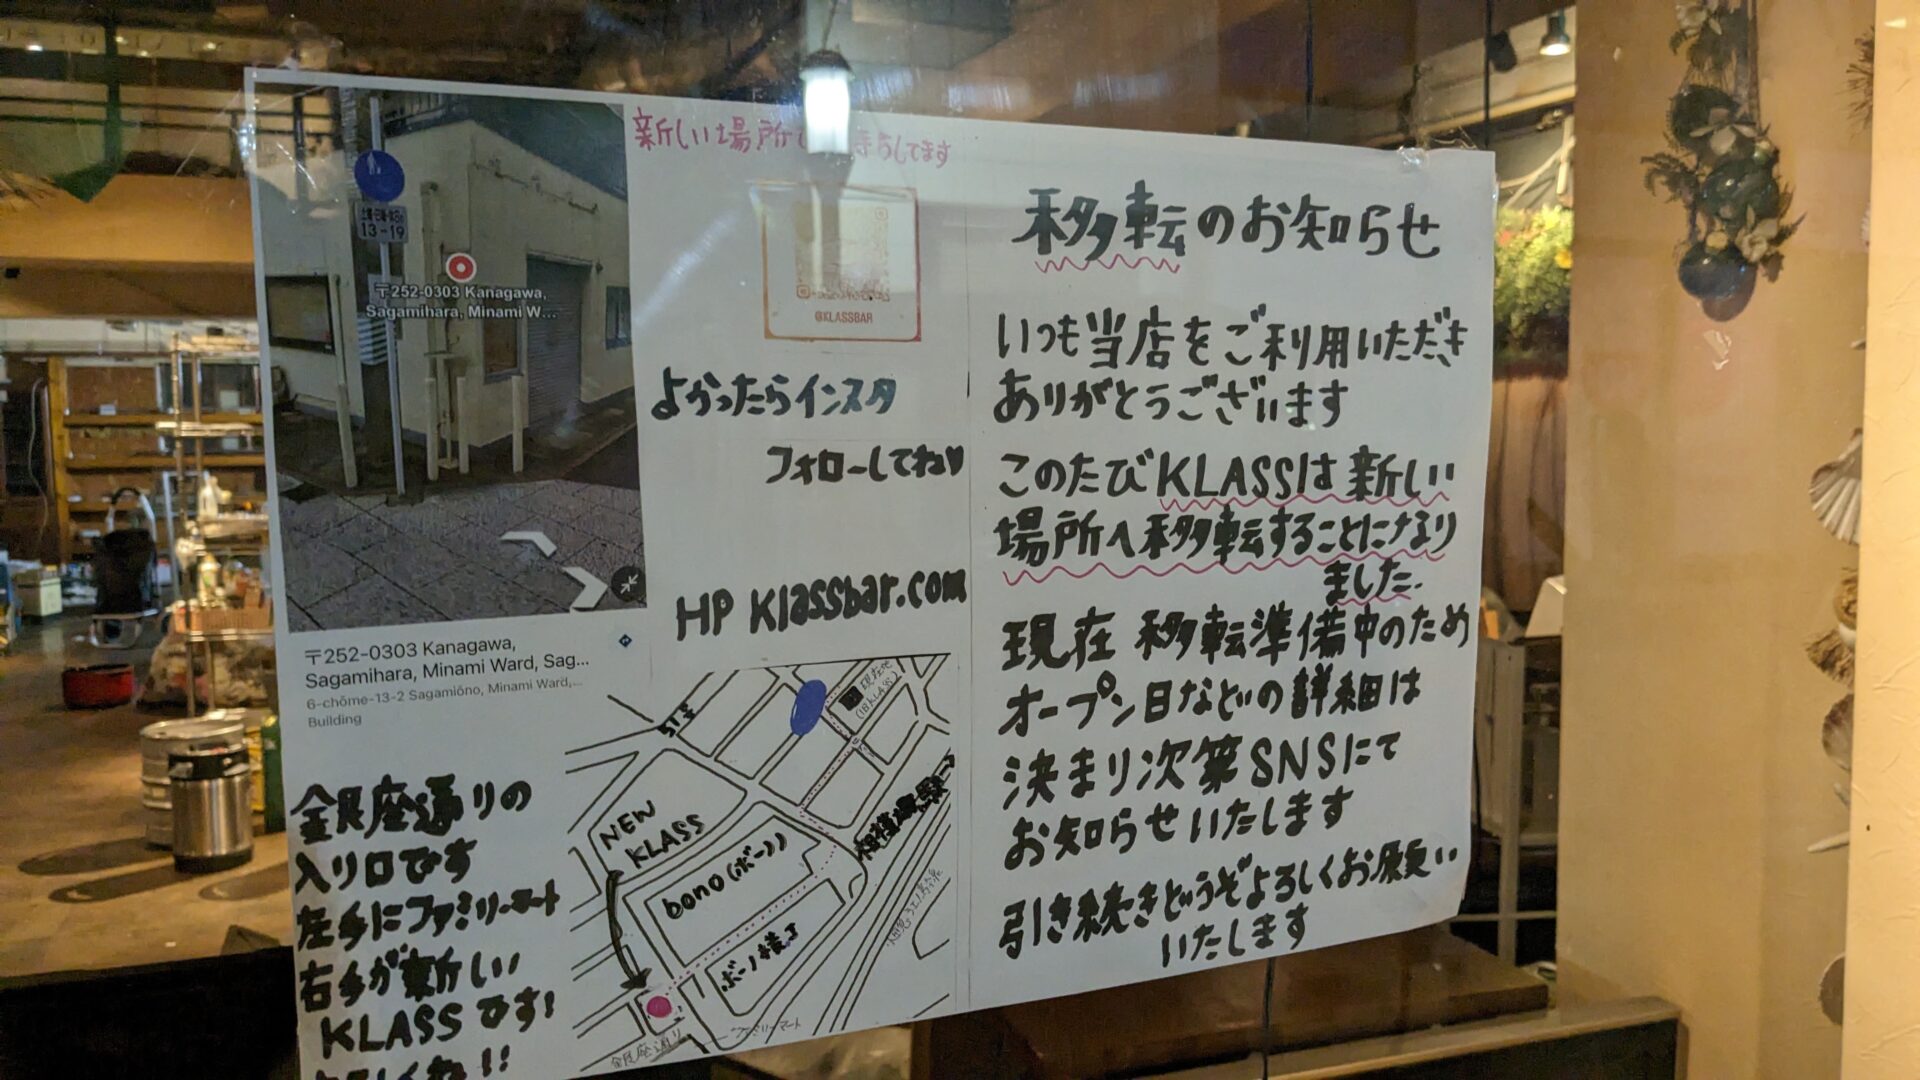 移転のお知らせ
いつも当店をご利用いただき
ありがとうございます
このたびKLASSは新しい
場所へ移転することになり
ました.
現在 移転準備中のため
オープン日などの詳細は
決まり次第SNSにて
お知らせいたします
引き続きどうぞよろしくお願い
いたします
新しい場所で 待ちしてます
@KLASSBAR
よかったらインスタ
フォローしてね♡
HP Klassbar.com
13-19
〒252-0303 Kanagawa,
Sagamihara, Minami W...
〒252-0303 Kanagawa,
Sagamihara, Minami Ward, Sag...
6-chōme-13-2 Sagamiōno, Minami Ward,...
Building
金銀座通りの
入り口です
左手にファミリーマート
右手が新しい
KLASSです!
51号
現在地
(旧KLASS)
NEW
KLASS
bono(ボーノ)
相模大野駅
金銀座通り
ファミリーマート